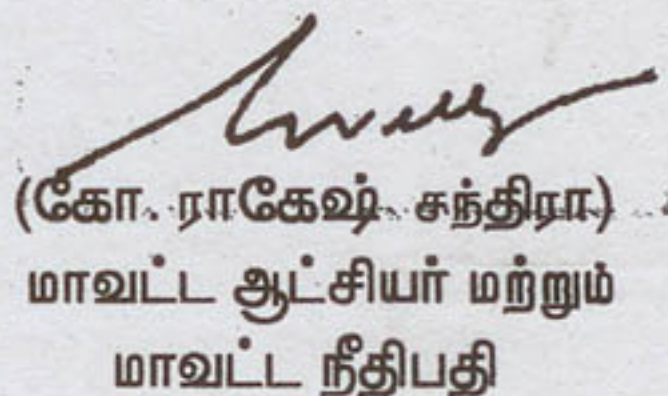 (கோ. ராகேஷ் சந்திரா)
மாவட்ட ஆட்சியர் மற்றும்
மாவட்ட நீதிபதி